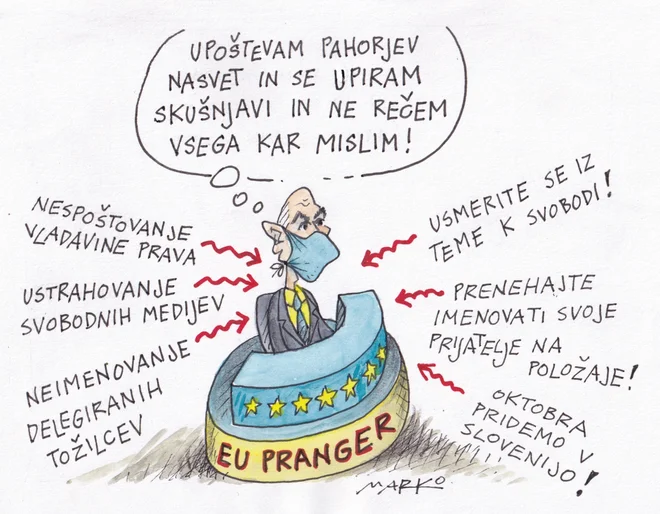 UPOŠTEVAM PAHORJEV
NASVET IN SE UPIRAM
SKUŠNJAVI IN NE REČEM
VSEGA KAR MISLIM!
NESPOŠTOVANJE
VLADAVINE PRAVA
USTRAHOVANJE
SVOBODNIH MEDIJEV
NEIMENOVANJE
DELEGIRANIH
TOŽILCEV
USMERITE SE IZ
TEME K SVOBODI!
PRENEHAJTE
IMENOVATI SVOJE
PRIJATELJE NA
POLOŽAJE!
OKTOBRA
PRIDEMO V
SLOVENIJO!
EU PRANGER
MARKO